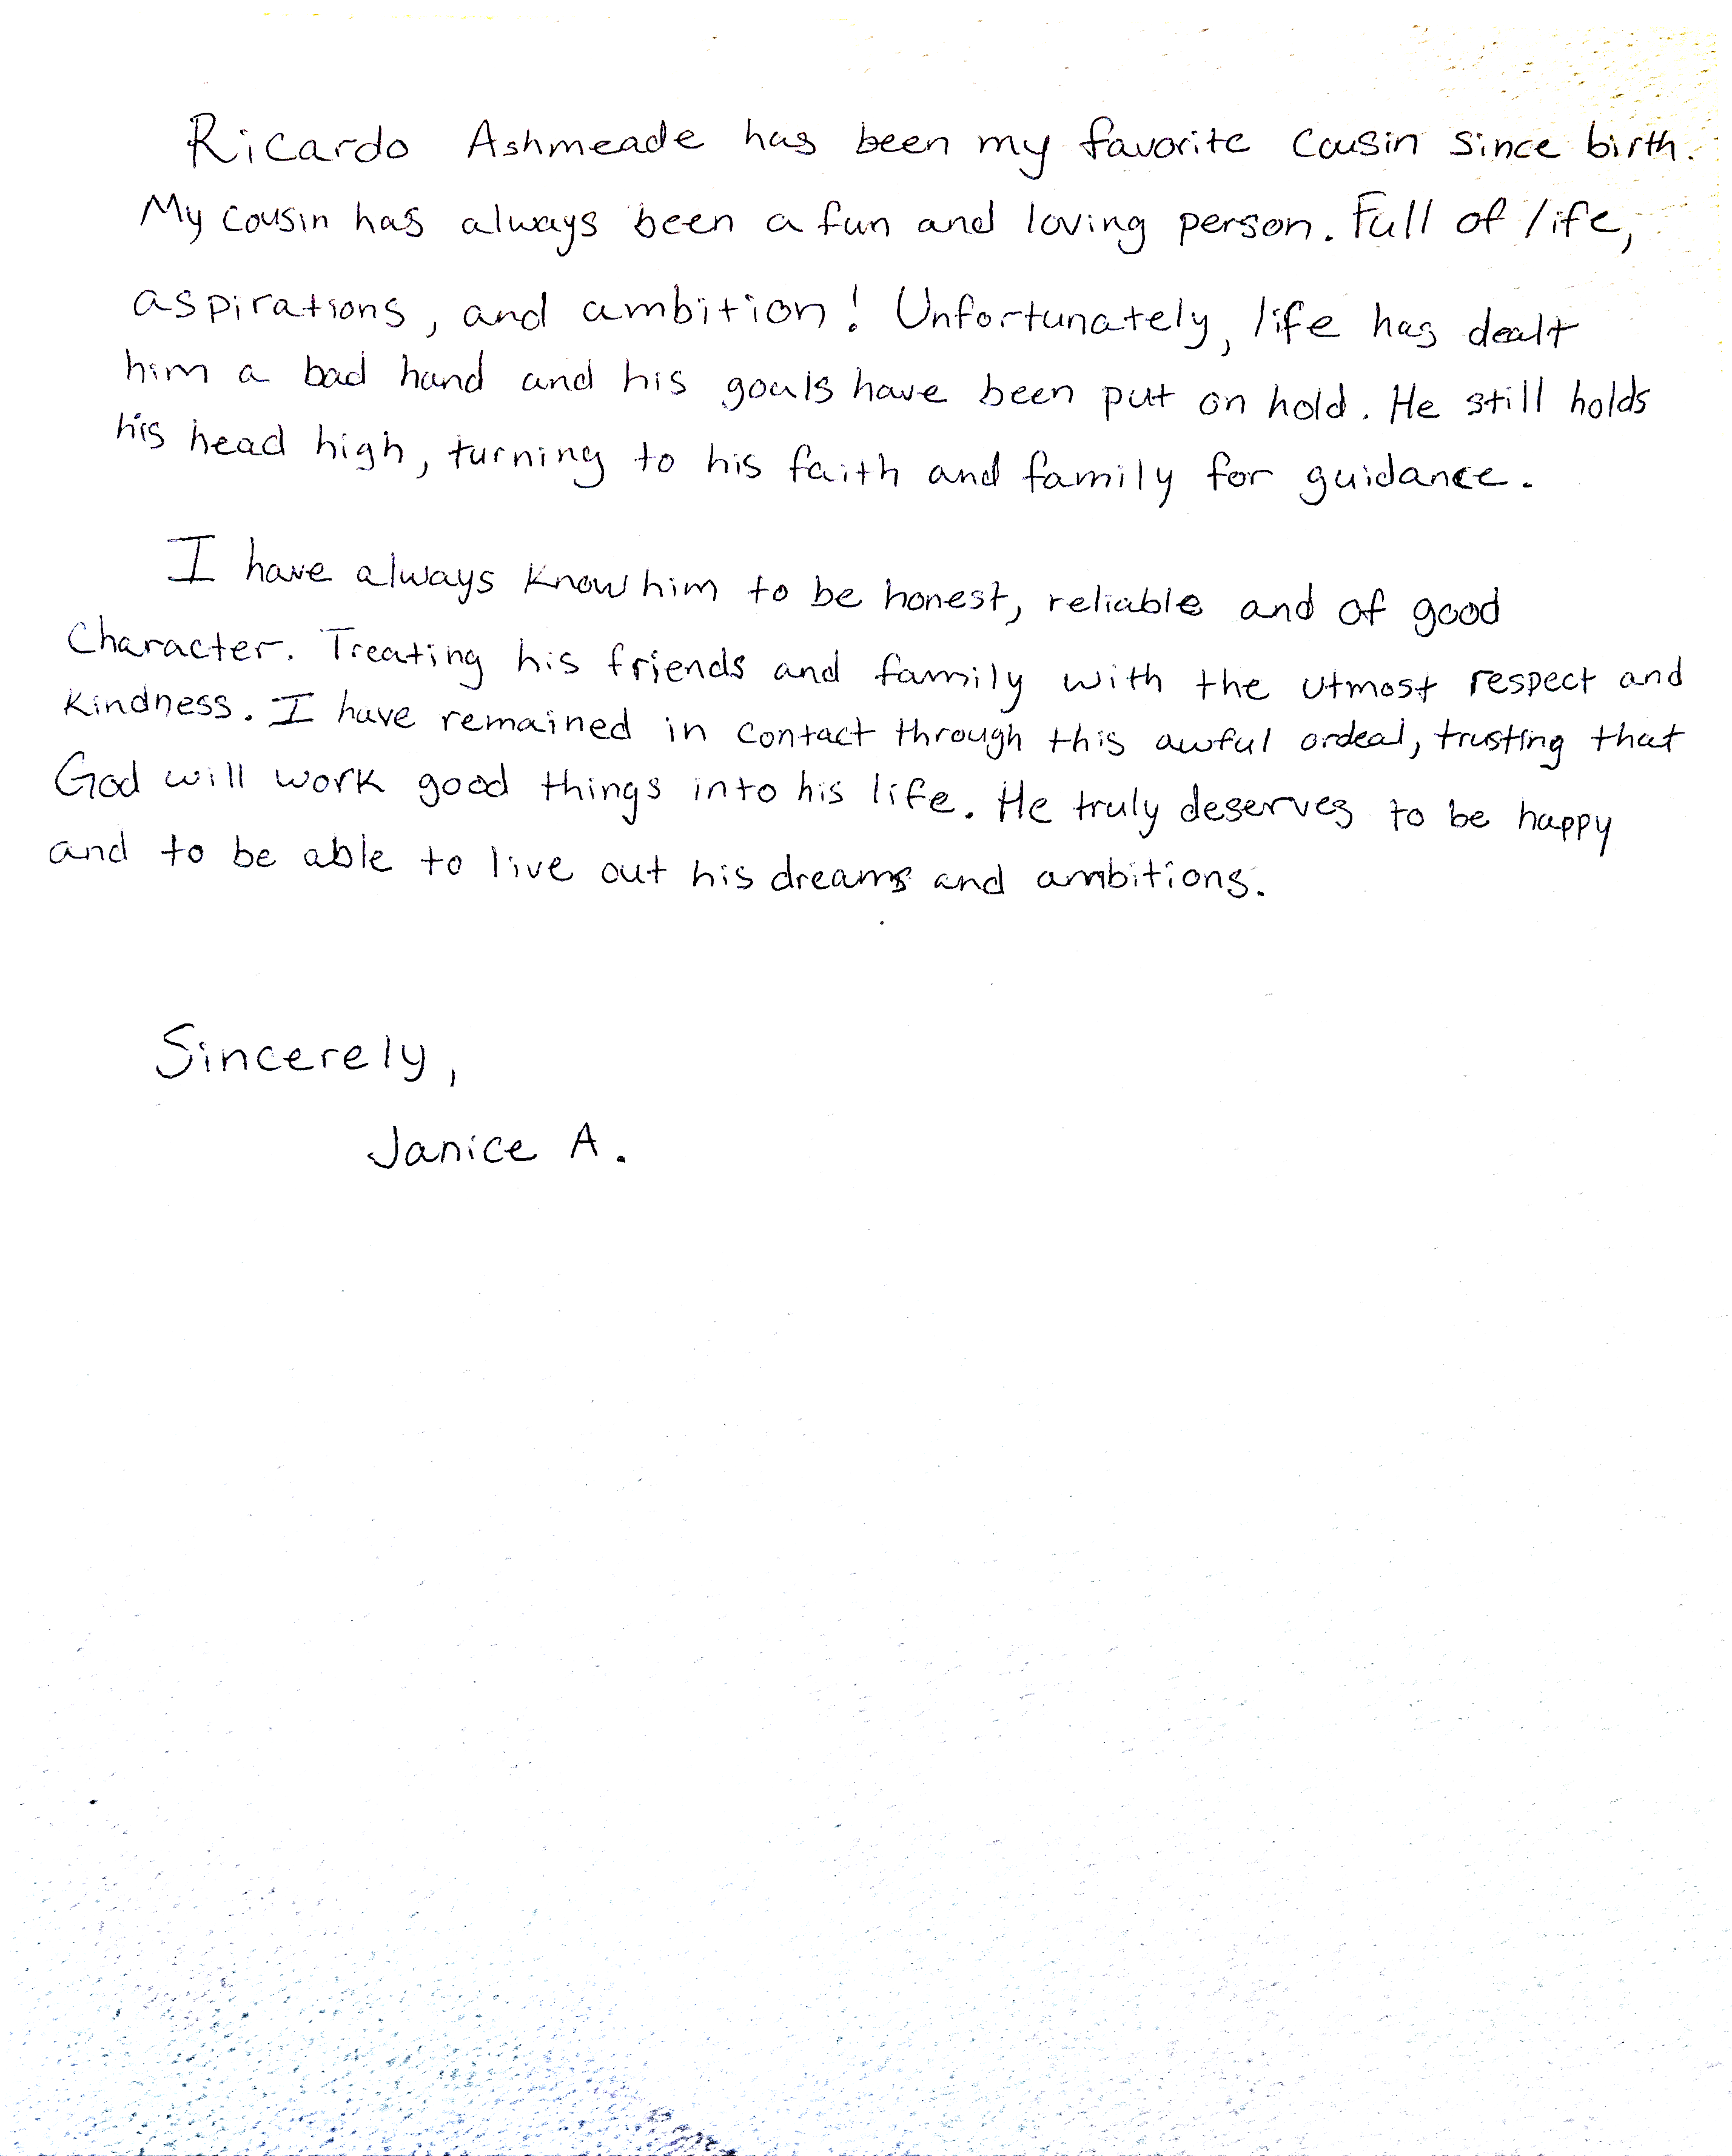 Ricardo Ashmeade has been my favorite cousin since birth.
My cousin has always been a fun and loving person. Full of life,
aspirations, and ambition! Unfortunately, life has dealt
him a bad hand and his goals have been put on hold. He still holds
his head high, turning to his faith and family for guidance.
I have always know him to be honest, reliable and of good
Character. Treating his friends and family with the utmost respect and
Kindness. I have remained in contact through this awful ordeal, trusting that
God will work good things into his life. He truly deserves to be happy
and to be able to live out his dreams and ambitions.
Sincerely,
Janice A.